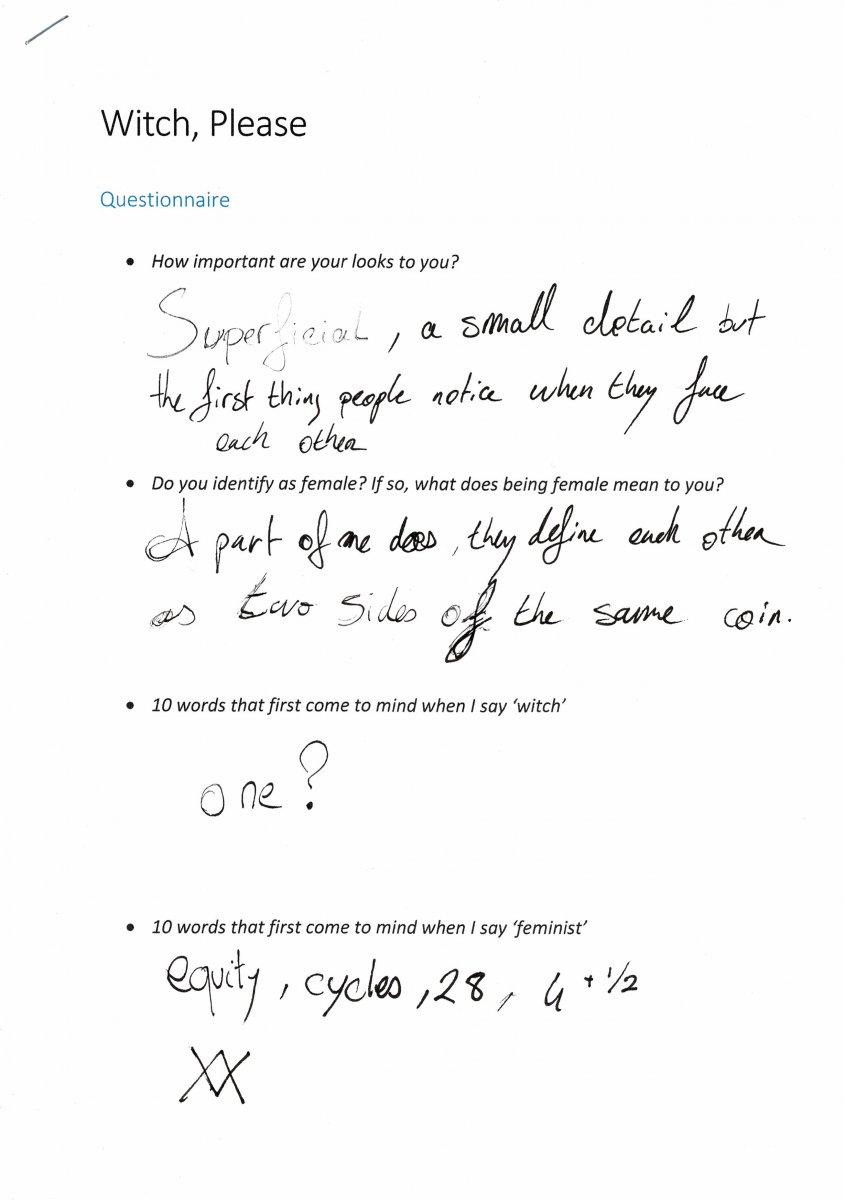 Witch, Please
Questionnaire
• How important are your looks to you?
Superficial, a small detail but
the first thing people notice when they face
each other
• Do you identify as female? If so, what does being female mean to you?
A part of me does, they define each other
as two sides of the same coin.
• 10 words that first come to mind when I say ‘witch’
one?
• 10 words that first come to mind when I say ‘feminist’
equity, cycles, 28, 4 + 1/2
XX